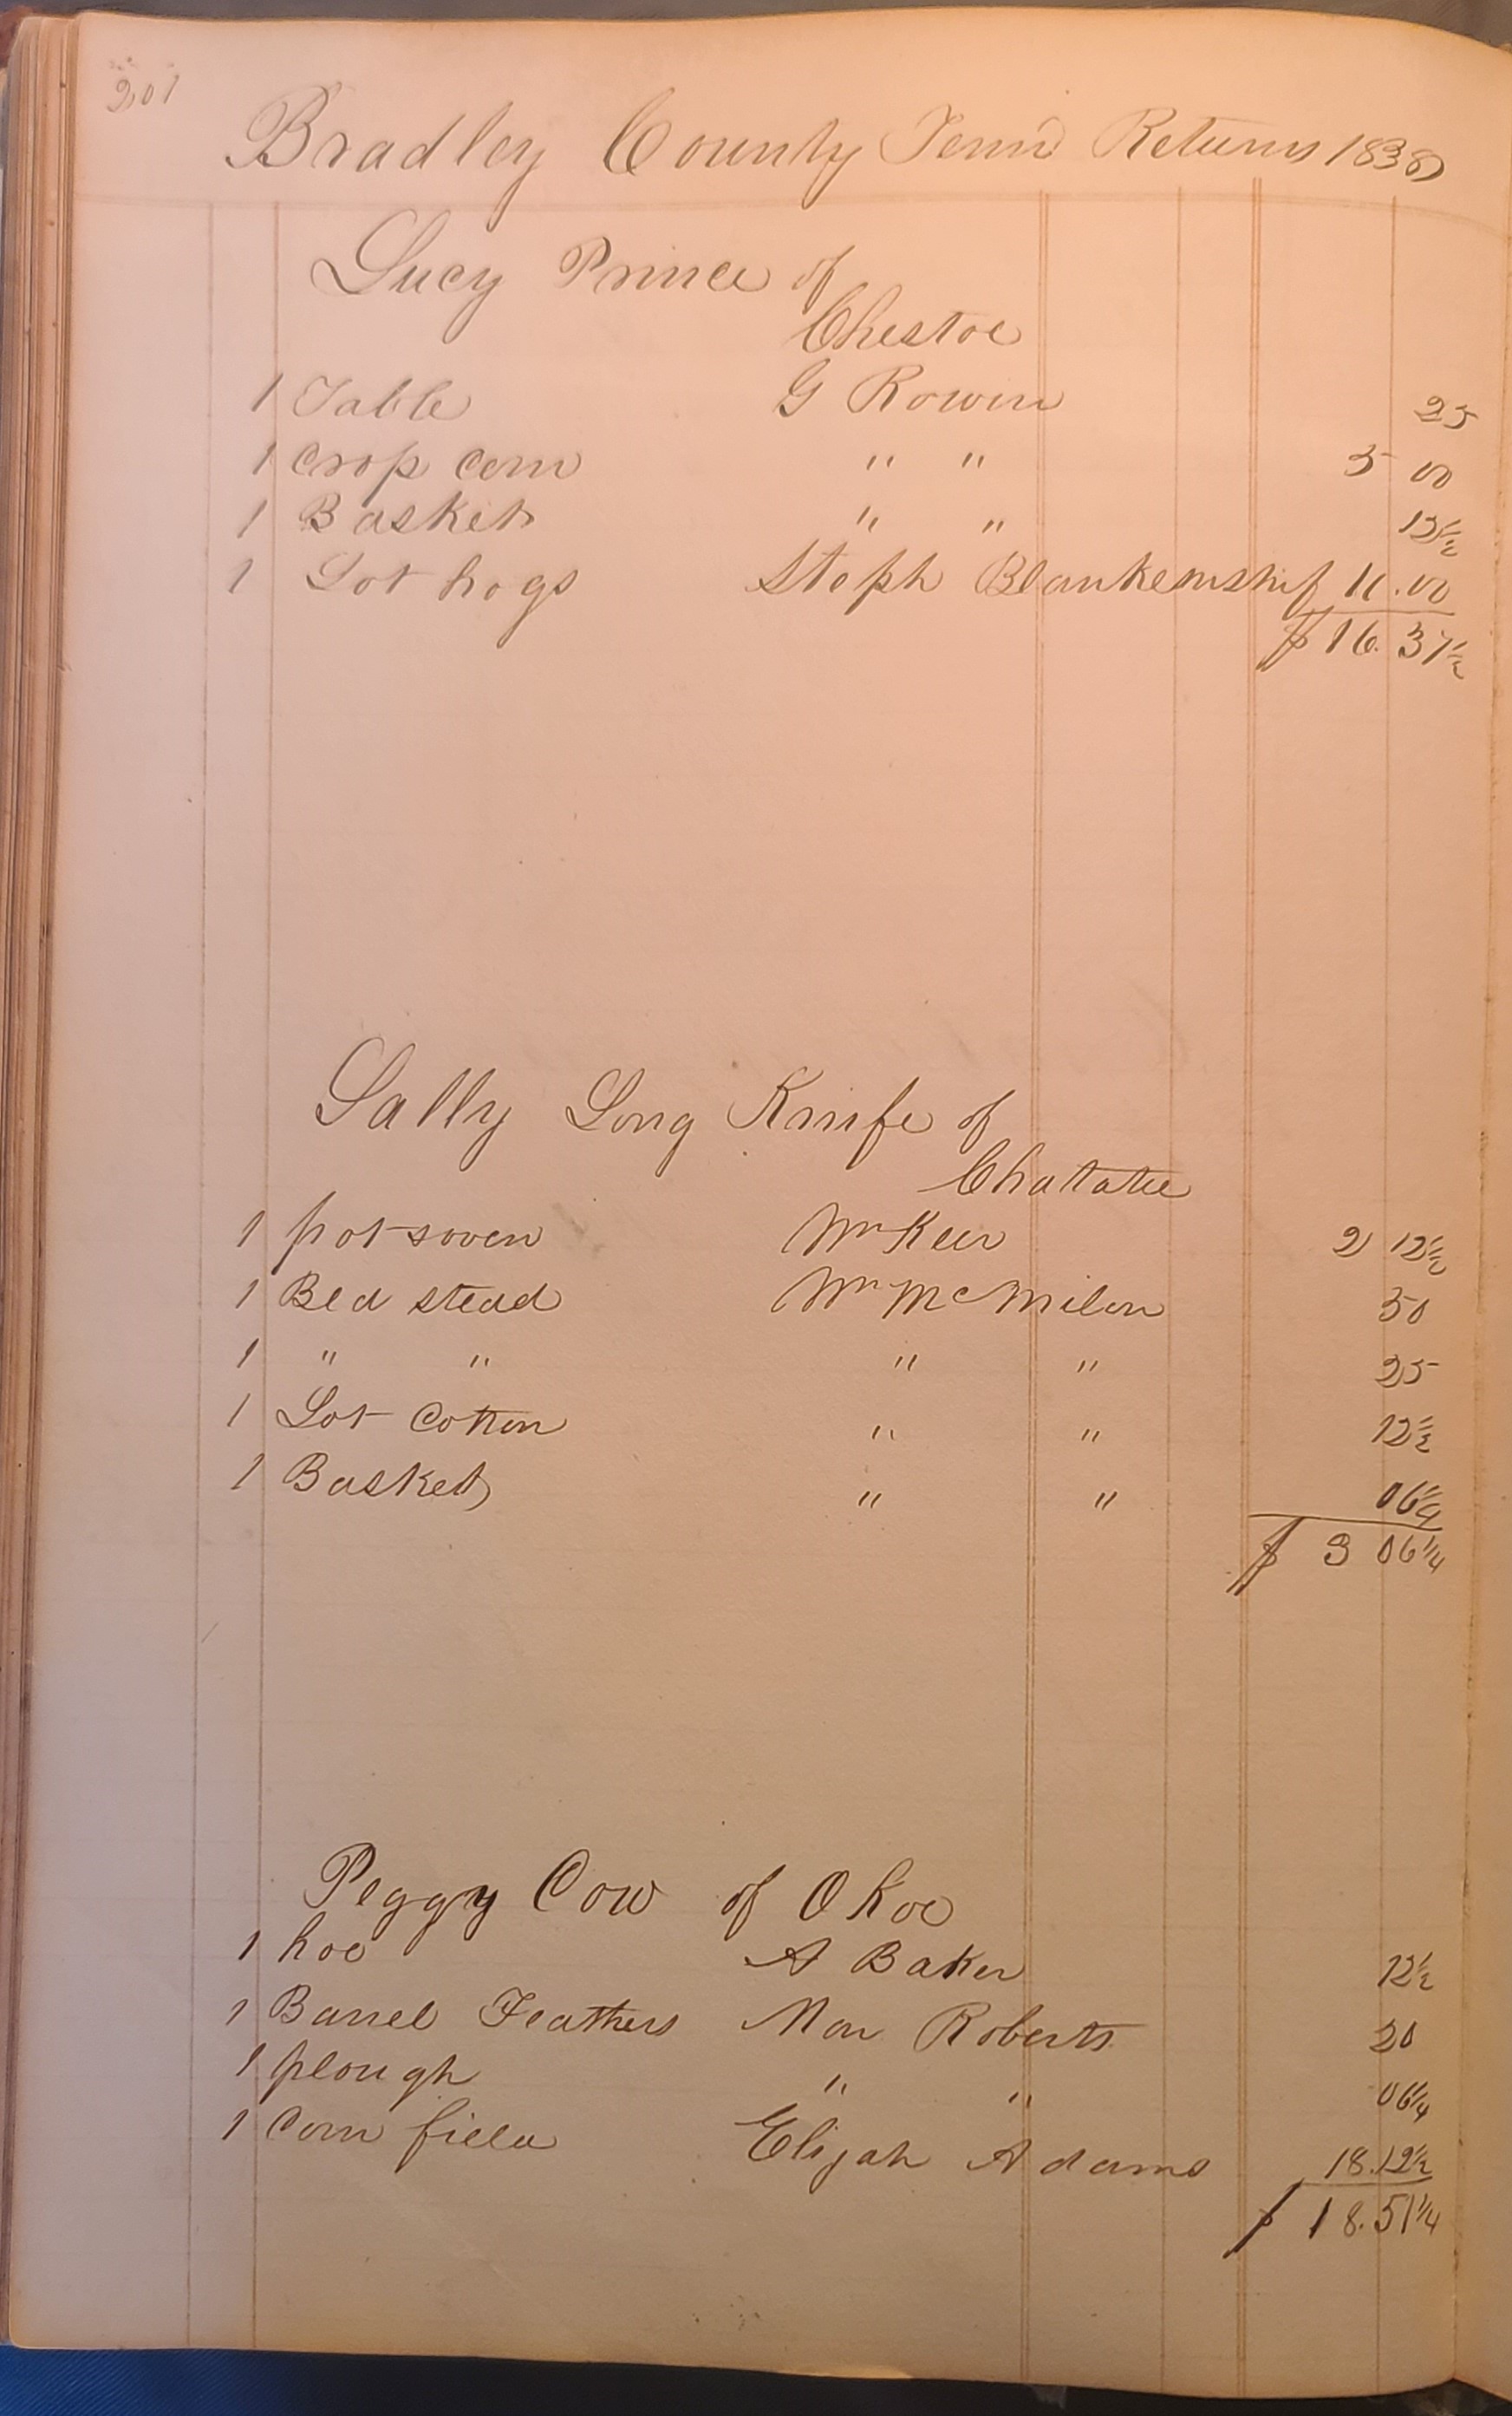 201
Bradley County Tenn Returns 1838
Lucy Prince of
Chestoe
1 Table G Rowin 25
1 Crop Corn " " 5 00
1 Basket " " 12½
1 Lot hogs Steph Blankenship 11.00
$16.37½
Sally Long Knife of
Chatatee
1 pot & oven Wm Keer 2 12½
1 Bed stead Wm McMilon 50
1 " " " " 25
1 Lot Cotton " " 12½
1 Basket " " 06¼
$ 3 06¼
Peggy Cow of Okoe
1 hoe A Baker 12½
1 Barrel Feathers Roberts 20
1 plough " " 06¼
1 Corn field Elijah Adams 18.12½
$ 18.51¼